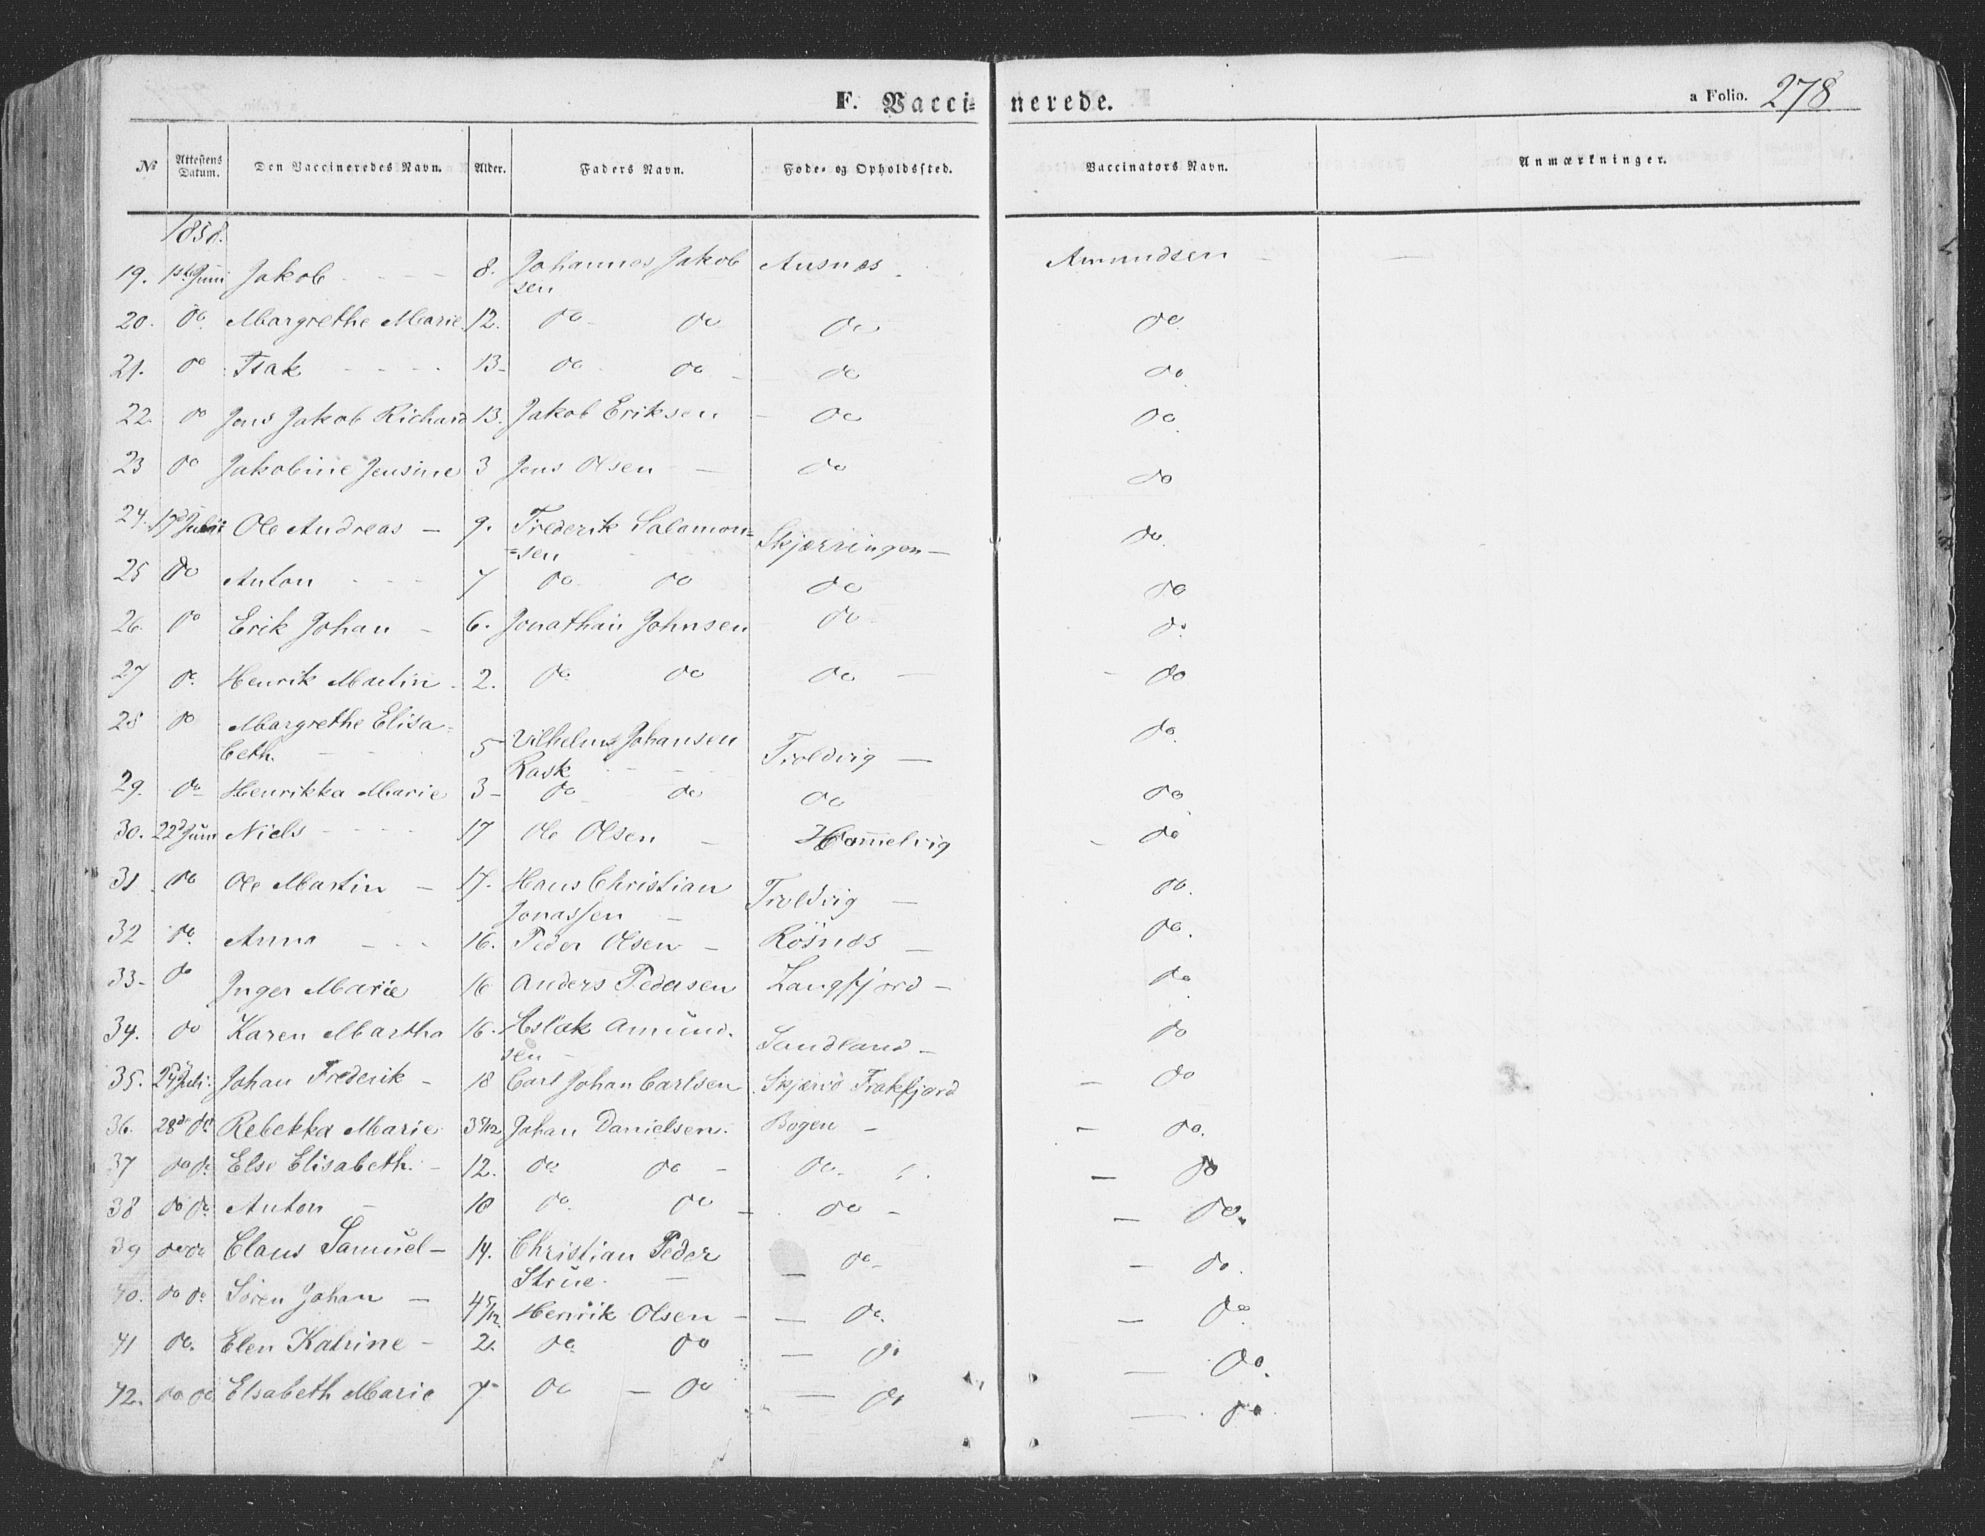 F. Vaccinerede. a Folio. 278
№ Attestens Datum. Den Vaccineredes Navn. Alder. Faders Navn. Føde- og Opholdssted. Vaccinators Navn. Anmærkninger.
1858.
19. 1ste Juni Jakob - - - 8. Johannes Jakob Ausnæs - Amundsen -
sen
20. do Margrethe Marie 12. do do do do
21. do Isak - - - - 13- do do - do do
22. do Jens Jakob Richard 13. Jakob Eriksen - do do
23 do Jakobine Jensine 3 Jens Olsen - do do
24. 17de Ole Andreas - 9. Frederik Salamon= Skjærringen - do
=sen
25 do Anton - - - 7 do do do do
26. do Erik Johan - 6. Jonathan Johnsen do do
27 do. Henrik Martin - 2. do do do - - do
28 do Margrethe Elisa- do
beth. - - 5 Vilhelms Johansen Troldvig -
Rask - - -
29. do Henrikka Marie 3- do do do do
30. 22d Juni Niels - - - - 17 Ole Olsen - Hammelvig - do
31. do Ole Martin - 17. Hans Christian Troldvig - do.
Jonassen -
32 do. Anna - - - 16. Peder Olsen - Rösnæs - do.
33- do Inger Marie 16 Anders Pedersen Langfjord - do
34. do Karen Martha 16. Aslak Amund- Sandland - do
sen -
35. Juli Johan Frederik - 18 Carl Johan Carlsen Skjervö Frakfjord - do
36. 28d do Rebekka Marie 3 5/12 Johan Danielsen. Bogen - - do.
37 do do Else Elisabeth. - 12. do do - do - do
38 do do Anton - 10 do do - do - - do.
39 do do Claus Samuel- 14. Christian Peder - do - do.
Strue. -
40. do do Sören Johan - 4 5/12 Henrik Olsen - - do. - do
41 do. Elen Katrine - 2. do do - do - do.
42. do do Elsabeth Marie 7- do - do - do - do